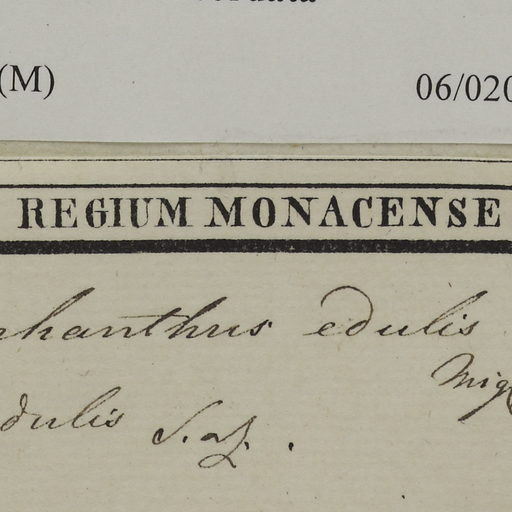 (M)
06/020
REGIUM MONACENSE
hanthus edulis
Miq
dulis